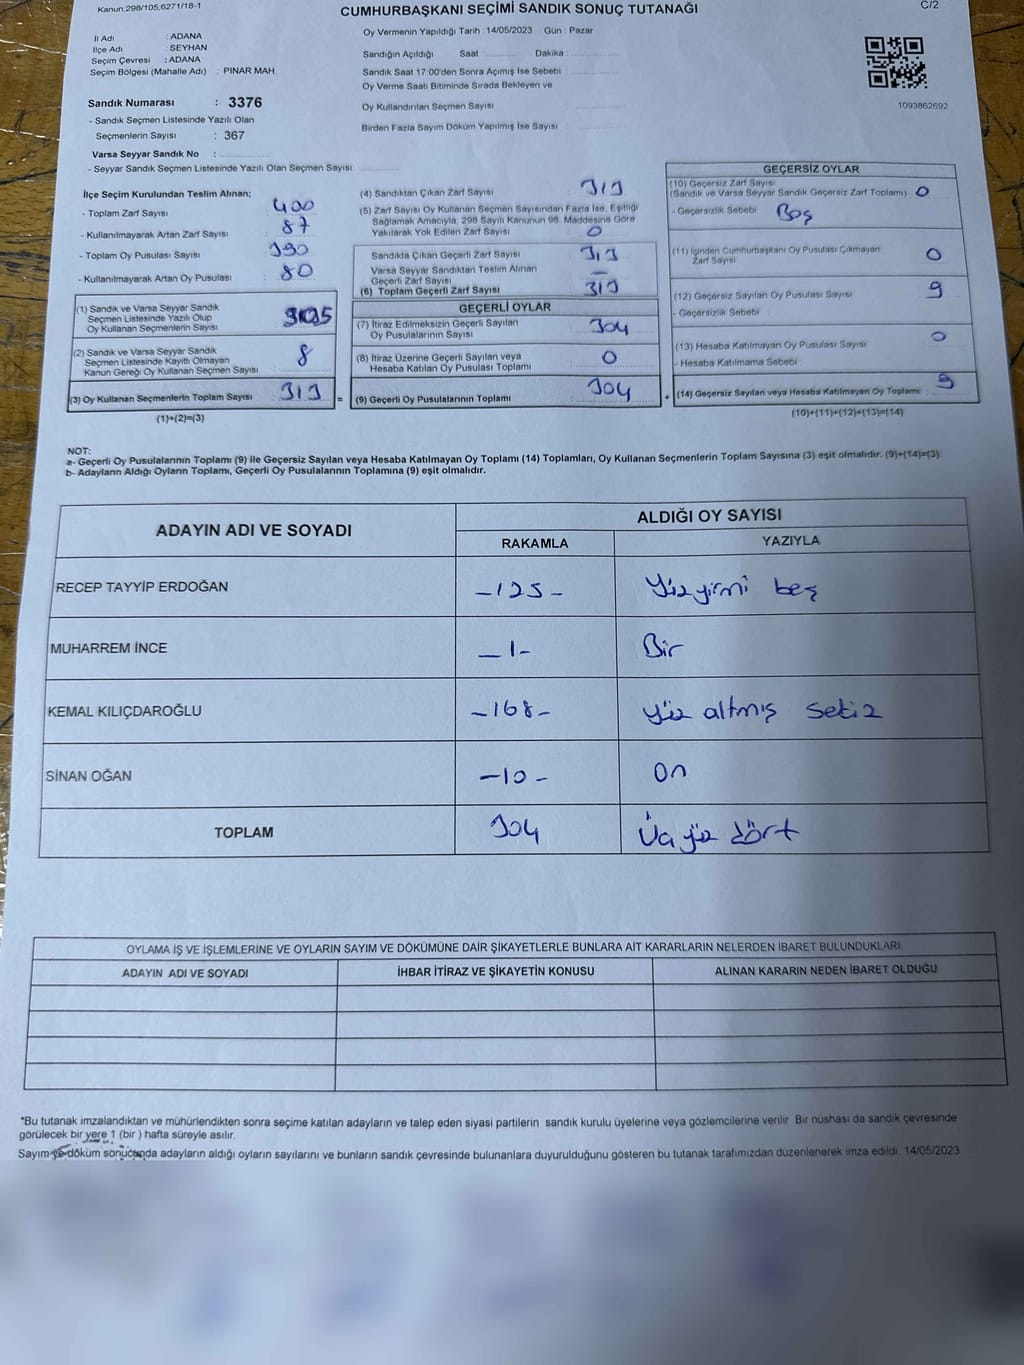 Kanun,298/105,6271/18-1
CUMHURBAŞKANI SEÇİMİ SANDIK SONUÇ TUTANAĞI
C/2
İl Adı : ADANA
İlçe Adı : SEYHAN
Seçim Çevresi : ADANA
Seçim Bölgesi (Mahalle Adı) : PINAR MAH.
Sandık Numarası : 3376
- Sandık Seçmen Listesinde Yazılı Olan
Seçmenlerin Sayısı : 367
Varsa Seyyar Sandık No :
- Seyyar Sandık Seçmen Listesinde Yazılı Olan Seçmen Sayısı
Oy Vermenin Yapıldığı Tarih : 14/05/2023 Gün : Pazar
Sandığın Açıldığı Saat : Dakika :
Sandık Saat 17:00'den Sonra Açımış İse Sebebi :
Oy Verme Saati Bitiminde Sırada Bekleyen ve
Oy Kullandırılan Seçmen Sayısı :
Birden Fazla Sayım Döküm Yapılmış İse Sayısı :
1093862692
İlçe Seçim Kurulundan Teslim Alınan;
- Toplam Zarf Sayısı : 400
- Kullanılmayarak Artan Zarf Sayısı : 87
- Toplam Oy Pusulası Sayısı : 390
- Kullanılmayarak Artan Oy Pusulası : 80
(1) Sandık ve Varsa Seyyar Sandık
Seçmen Listesinde Yazılı Olup
Oy Kullanan Seçmenlerin Sayısı
(2) Sandık ve Varsa Seyyar Sandık
Seçmen Listesinde Kayıtlı Olmayan
Kanun Gereği Oy Kullanan Seçmen Sayısı : 8
(3) Oy Kullanan Seçmenlerin Toplam Sayısı : 313 =
(1)+(2)=(3)
(4) Sandıktan Çıkan Zarf Sayısı : 313
(5) Zarf Sayısı Oy Kullanan Seçmen Sayısından Fazla İse, Eşitliği
Sağlamak Amacıyla, 298 Sayılı Kanunun 98. Maddesine Göre
Yakılarak Yok Edilen Zarf Sayısı : 0
Sandıkta Çıkan Geçerli Zarf Sayısı : 313
Varsa Seyyar Sandıktan Teslim Alınan
Geçerli Zarf Sayısı : —
(6) Toplam Geçerli Zarf Sayısı : 313
GEÇERLİ OYLAR
(7) İtiraz Edilmeksizin Geçerli Sayılan
Oy Pusulalarının Sayısı : 304
(8) İtiraz Üzerine Geçerli Sayılan veya
Hesaba Katılan Oy Pusulası Toplamı : 0
(9) Geçerli Oy Pusulalarının Toplamı : 304 +
GEÇERSİZ OYLAR
(10) Geçersiz Zarf Sayısı
(Sandık ve Varsa Seyyar Sandık Geçersiz Zarf Toplamı) : 0
- Geçersizlik Sebebi : Boş
(11) İçinden Cumhurbaşkanı Oy Pusulası Çıkmayan
Zarf Sayısı : 0
(12) Geçersiz Sayılan Oy Pusulası Sayısı : 9
- Geçersizlik Sebebi :
(13) Hesaba Katılmayan Oy Pusulası Sayısı : 0
- Hesaba Katılmama Sebebi :
(14) Geçersiz Sayılan veya Hesaba Katılmayan Oy Toplamı : 9
(10)+(11)+(12)+(13)=(14)
NOT:
a- Geçerli Oy Pusulalarının Toplamı (9) ile Geçersiz Sayılan veya Hesaba Katılmayan Oy Toplamı (14) Toplamları, Oy Kullanan Seçmenlerin Toplam Sayısına (3) eşit olmalıdır. (9)+(14)=(3)
b- Adayların Aldığı Oyların Toplamı, Geçerli Oy Pusulalarının Toplamına (9) eşit olmalıdır.
ADAYIN ADI VE SOYADI
ALDIĞI OY SAYISI
RAKAMLA YAZIYLA
RECEP TAYYİP ERDOĞAN -125- Yüz yirmi beş
MUHARREM İNCE -1- Bir
KEMAL KILIÇDAROĞLU -168- Yüz altmış sekiz
SİNAN OĞAN -10- On
TOPLAM 304 Üç yüz dört
OYLAMA İŞ VE İŞLEMLERİNE VE OYLARIN SAYIM VE DÖKÜMÜNE DAİR ŞİKAYETLERLE BUNLARA AİT KARARLARIN NELERDEN İBARET BULUNDUKLARI
ADAYIN ADI VE SOYADI İHBAR İTİRAZ VE ŞİKAYETİN KONUSU ALINAN KARARIN NEDEN İBARET OLDUĞU
*Bu tutanak imzalandıktan ve mühürlendikten sonra seçime katılan adayların ve talep eden siyasi partilerin sandık kurulu üyelerine veya gözlemcilerine verilir. Bir nüshası da sandık çevresinde
görülecek bir yere 1 (bir ) hafta süreyle asılır.
Sayım ve döküm sonucunda adayların aldığı oyların sayılarını ve bunların sandık çevresinde bulunanlara duyurulduğunu gösteren bu tutanak tarafımızdan düzenlenerek imza edildi. 14/05/2023